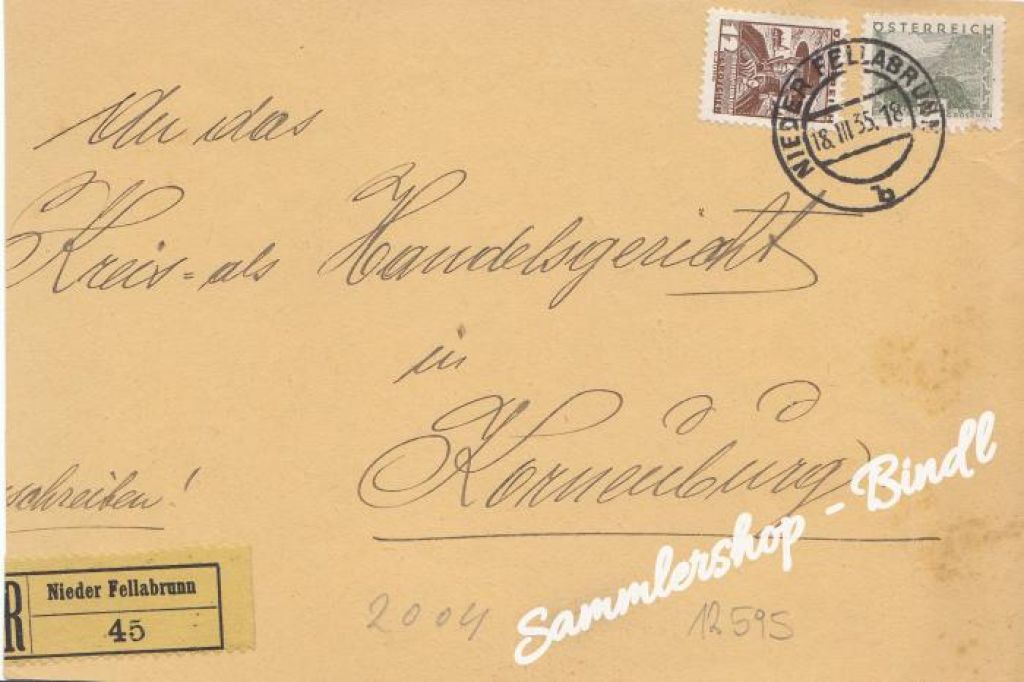 ÖSTERREICH
1
GROSCHEN
NIEDER FELLABRUNN
18. III. 35. 18
b
An das
Kreis= als Handelsgericht
in
Korneuburg
schreiben!
R
Nieder Fellabrunn
45
2004
12595
Sammlershop - Bindl